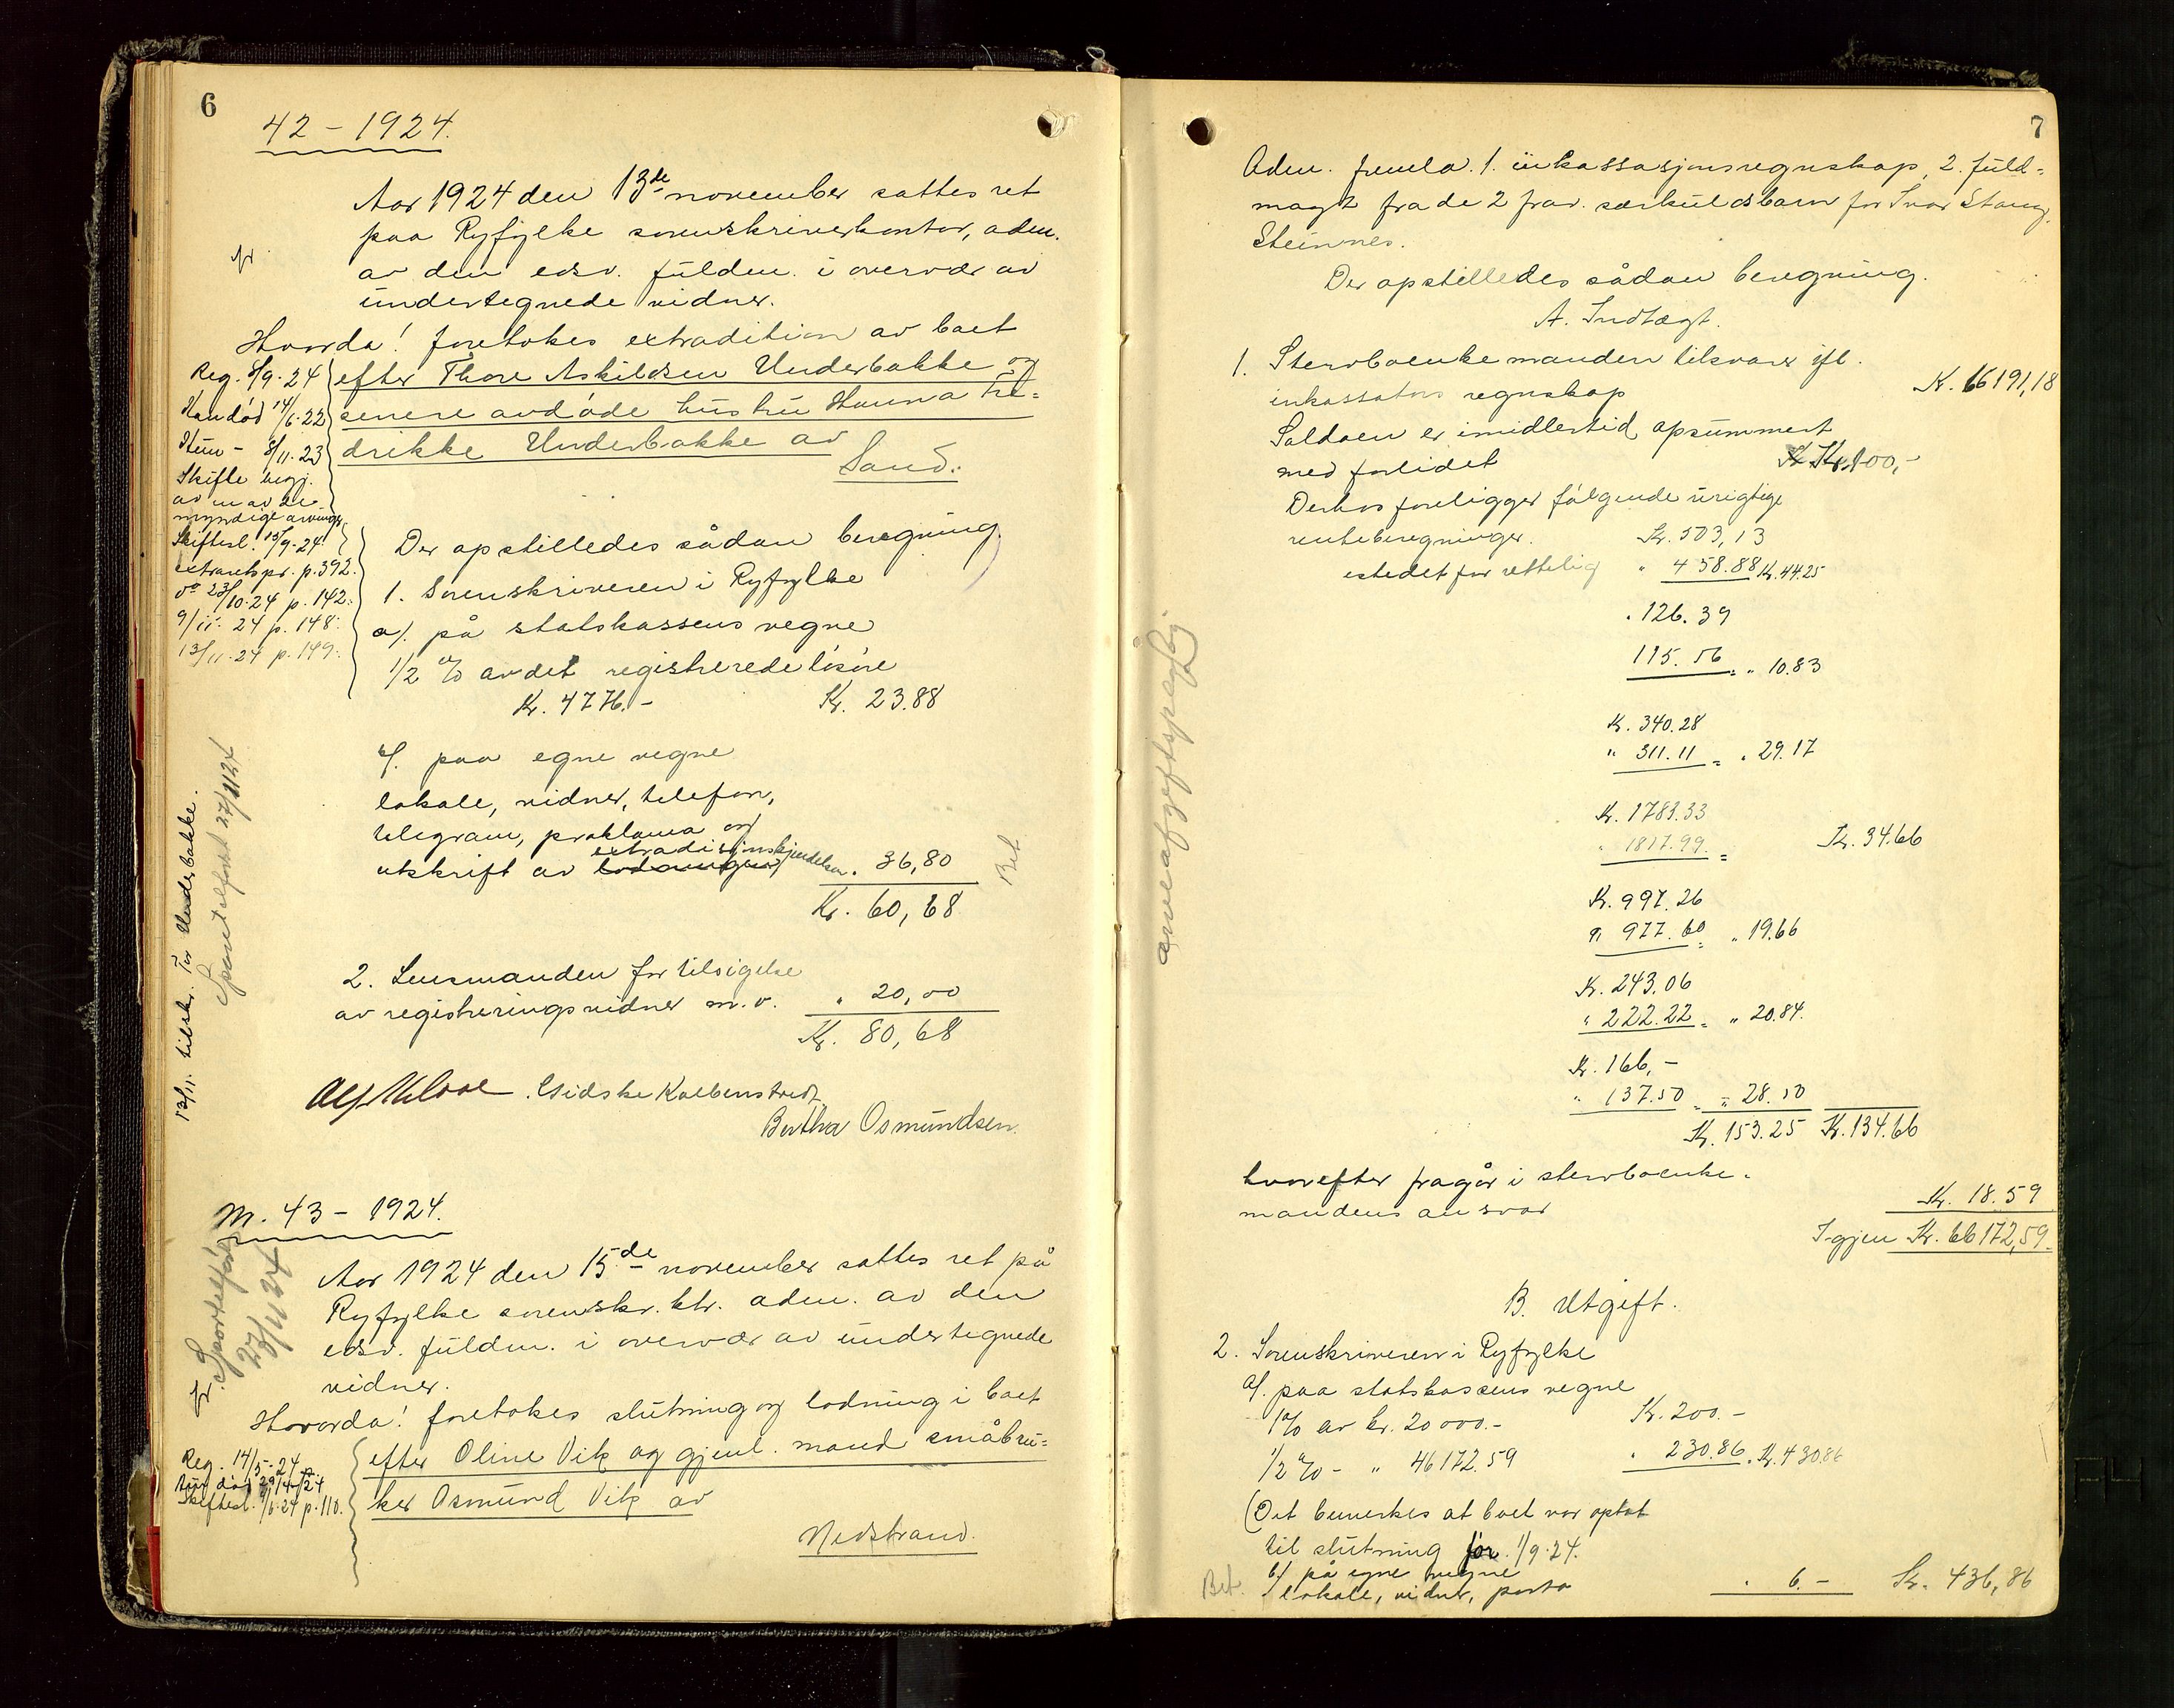 6
42 - 1924.
Aar 1924 den 13de november sattes ret
paa Ryfylke sorenskriverkontor, adm.
av den edsv. fuldm. i overvær av
undertegnede vidner.
Hvorda! foretokes extradition av boet
efter Thore Askildsen Underbakke og
senere avdøde hustru Hanna Fre-
drikke Underbakke av
Sand.
Reg. 8/9-24
Man død 14/6-22
Hun - 8/11-23
Skifte begj.
av
myndige arvinger
Skiftesl. 15/9-24
extraretspr. p. 392.
do 23/10-24 p. 142.
9/11-24 p. 148.
13/11-24 p. 149.
Der opstilledes sådan beregning.
1. Sorenskriveren i Ryfylke
a/. på statskassens vegne
1/2 % av det registrerede løsøre
Kr. 4776.- Kr. 23.88
b/. paa egne vegne
lokale, vidner, telefon,
telegram, proklama og
extradisjonskjendelse
utskrift av " 36,80
Bet
Kr. 60,68
2. Lensmanden for tilsigelse
av registreringsvidner m.v. " 20,00
Kr. 80,68
Gidske Kolbenstvedt
Bertha Osmundsen.
13/11. tilskr. Tor Underbakke.
Sportelført 27/11 24
nr. 43 - 1924.
Aar 1924 den 15de november sattes ret på
Ryfylke sorenskr. ktr. adm. av den
edsv. fuldm. i overvær av undertegnede
vidner.
Hvorda! foretokes slutning og lodning i boet
efter Oline Vik og gjenl. mand småbru-
ker Osmund Vik av
Nedstrand.
Sportelført
27/11 24
Reg. 14/5-24
død 29/4-24
Skiftesl. 4/6-24 p. 110.
7
Adm. fremla. 1. inkassasjonsregnskap, 2. fuld-
magt fra de 2 frav. særkuldsbarn for Ivar Stang.
Steinnes.
Der opstilledes sådan beregning.
A. Indtægt.
1. Stervboenkemanden tilsvarer ifl.
inkassators regnskap K. 66191,18
Saldoen er imidlertid opsummert
med forlidet Kr. 100,-
Derhos foreligger følgende urigtige
renteberegninger. Kr. 503,13
istedet for rettelig " 458.88 Kr. 44.25
" 126.39
115.56 = " 10.83
Kr. 340.28
" 311.11 = " 29.17
Kr. 1783.33
" 1817.99 = Kr. 34.66
Kr. 997.26
" 977.60 = " 19.66
Kr. 243.06
" 222.22 = " 20.84.
Kr. 166,-
" 137.50 = " 28.50
Kr. 153.25 Kr. 134.66
hvorefter fragår i stervboenke-
mandens ansvar Kr. 18.59
Igjen Kr. 66172,59.
B. Utgift.
2. Sorenskriveren i Ryfylke
a/. paa statskassens vegne
1% av kr. 20000.- Kr. 200.-
1/2 % - " 46172.59 " 230.86 Kr. 430.86
(Det bemerkes at boet var optat
til slutning før 1/9-24.
b/ på egne vegne
Bet. lokale, vidner, porto " 6.- Kr. 436,86
arveafgiftspligtig.